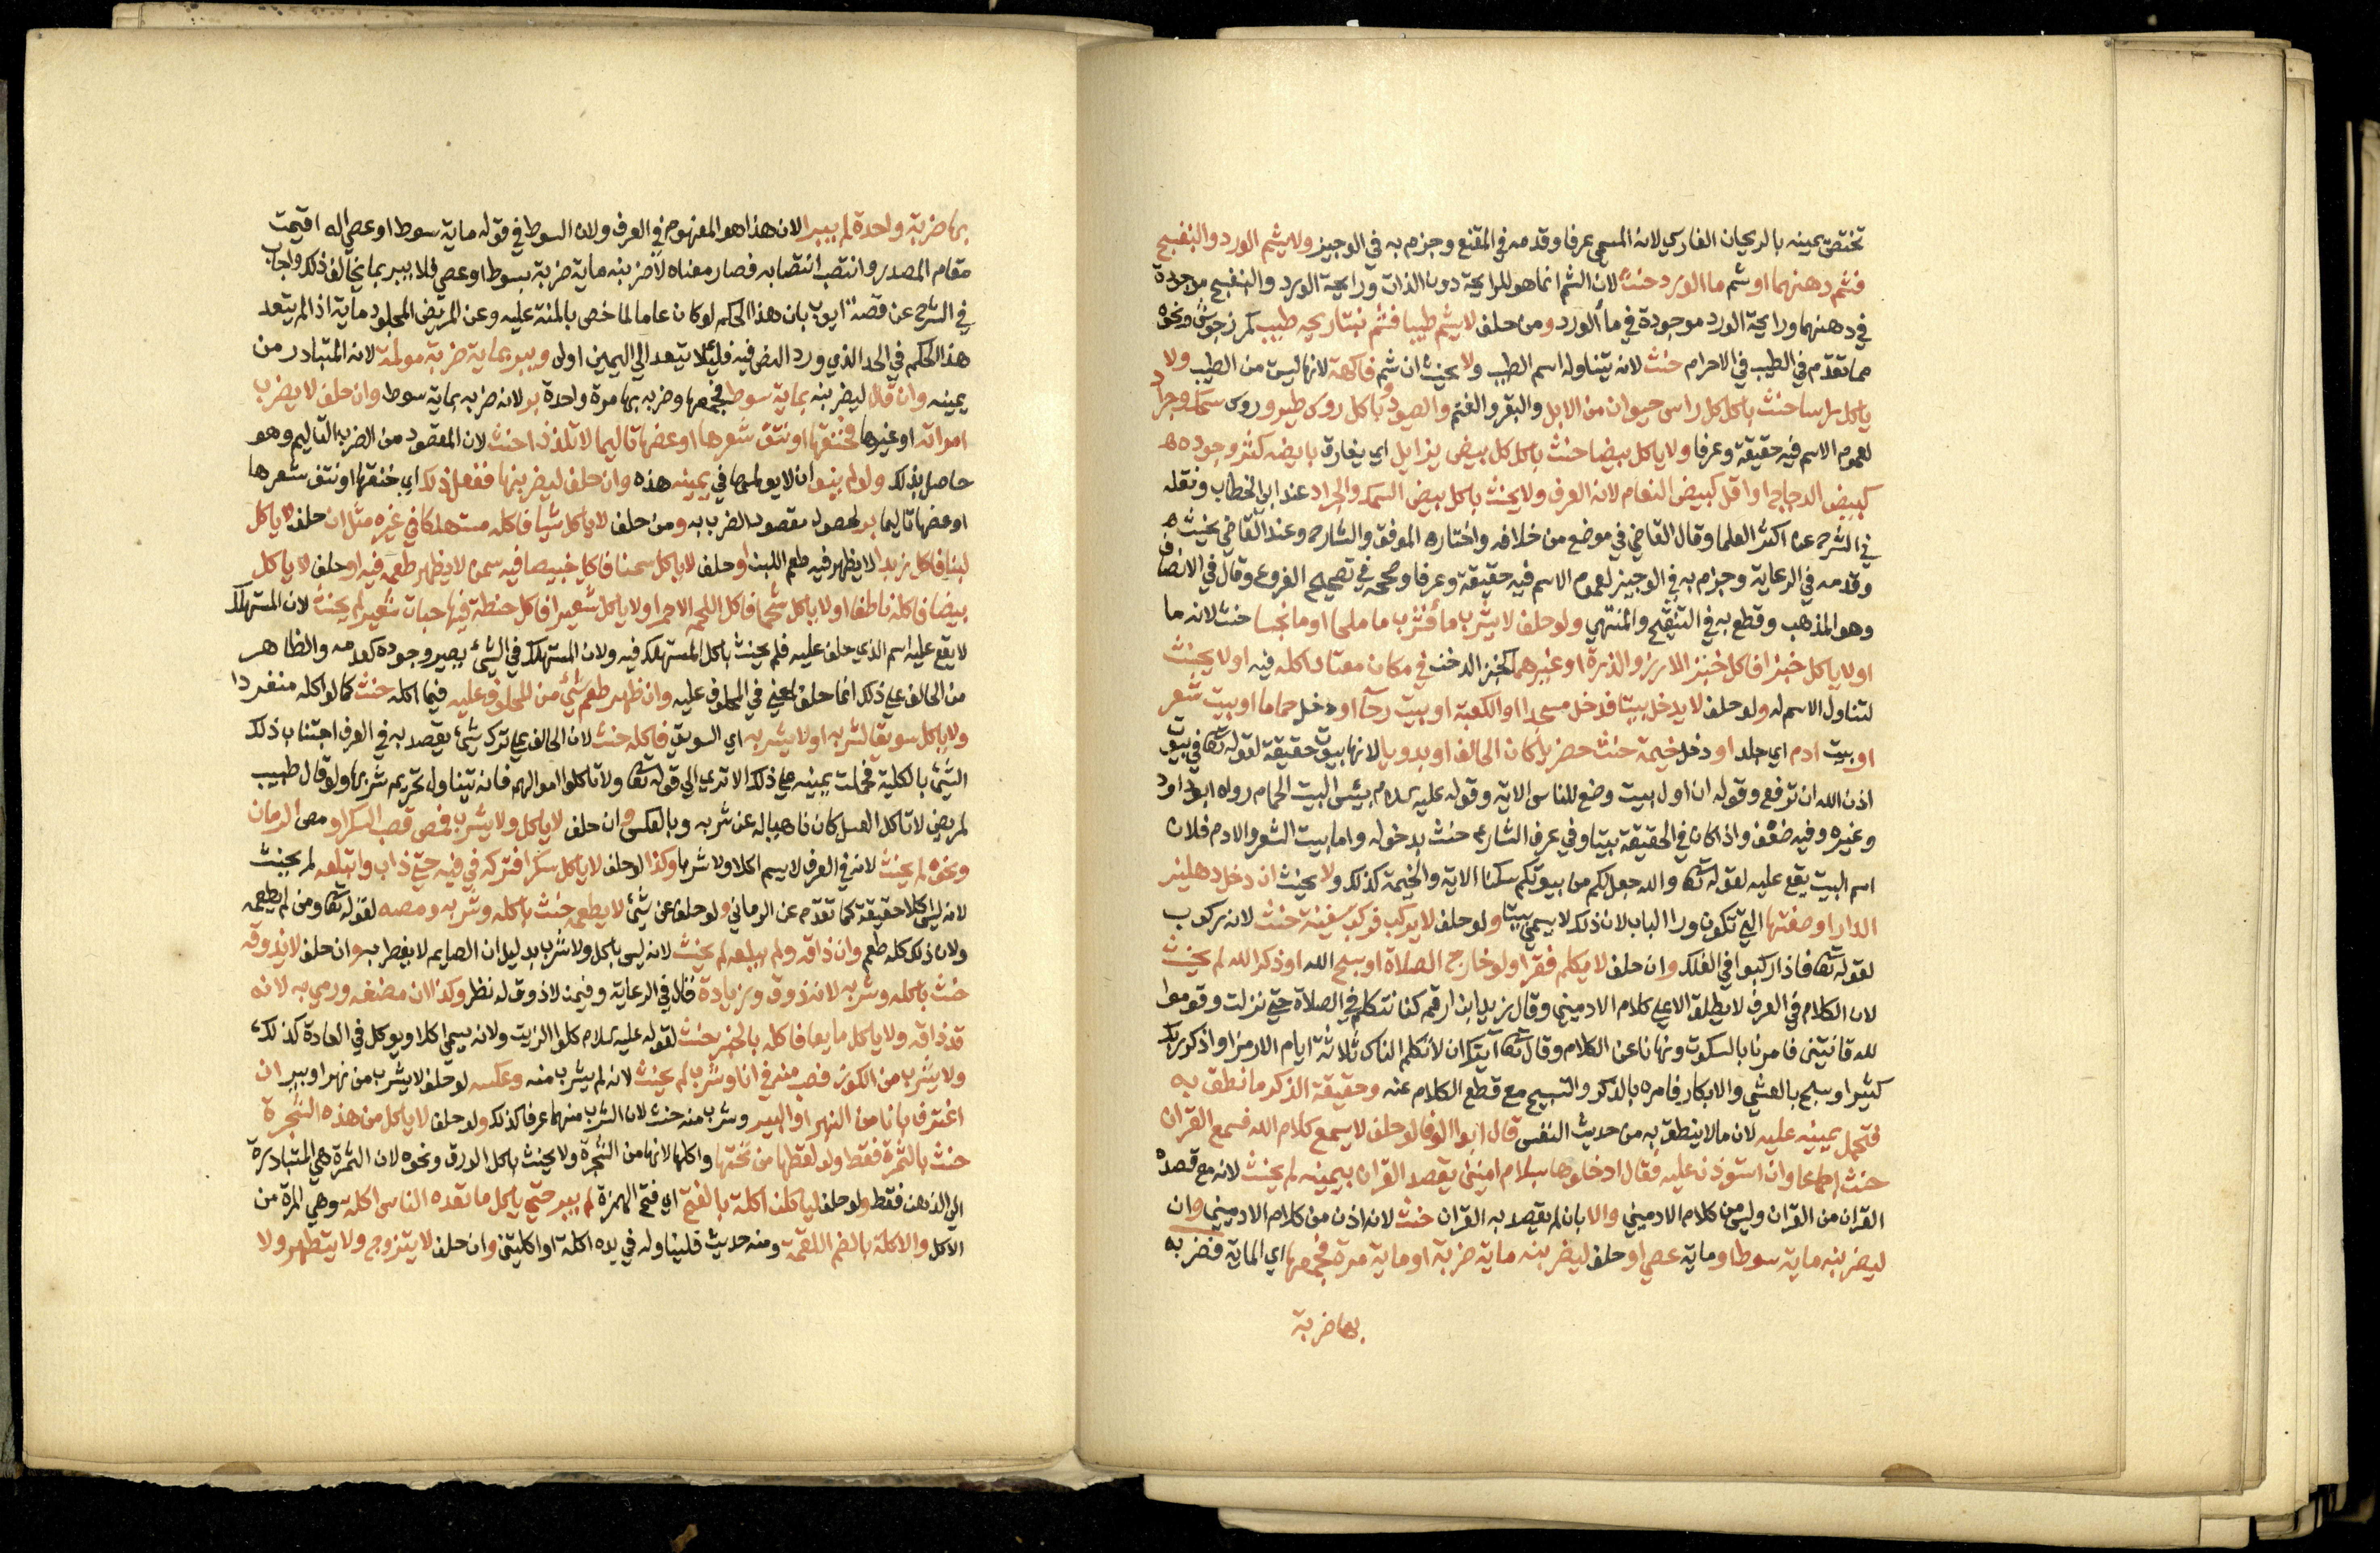 تختص يمينه بالريحان الفارسي لانه المسمى عرفا وقدمه في المقنع وجزم به في الوجيز ولا يشم الورد والبنفسج
فشم دهنهما او شم ما الورد حنث لان الشم انما هو للرايحة دون الذات ورايحة الورد والبنفسج موجودة
في دهنهما ورايحة الورد موجودة في ما الورد ومن حلف لا يشم طيبا فشم نبتا ريحه طيب كمرزجوش ونحوه
مما تقدم في الطيب في الاحرام حنث لانه يتناوله اسم الطيب ولا يحنث ان شم فاكهة لانها ليست من الطيب ولا
ياكل راسا حنث باكل كل راس حيوان من الابل والبقر والغنم والصيود وباكل روس طير وروس سمك وجراد
لعموم الاسم فيه حقيقة وعرفا ولا ياكل بيضا حنث باكل كل بيض يزايل اي يفارق بايضه كثر وجوده
كبيض الدجاج او اقل كبيض النعام لانه العرف ولا يحنث باكل بيض السمك والجراد عند ابي الخطاب ونقله
في الشرح عن اكثر العلما وقال القاضي في موضع من خلافه واختاره الموفق والشارح وعند القاضي يحنث
وقدمه في الرعاية وجزم به في الوجيز لعموم الاسم فيه حقيقة وعرفا وصححه في تصحيح الفروع وقال في الانصاف
وهو المذهب وقطع به في التنقيح والمنتهى ولو حلف لا يشرب ما فشرب ما ملحا او ما نجسا حنث لانه ما
او لا ياكل خبزا فاكل خبز الارز والذرة او غيرهما كخبز الدخن في مكان معتاد اكله فيه او لا يحنث
لتناول الاسم له ولو حلف لا يدخل بيتا فدخل مسجدا او الكعبة او بيت رحا او دخل حماما او بيت شعر
او بيت ادم اي جلد او دخل خيمة حنث حضريا كان الحالف او بدويا لانها بيوت حقيقة لقوله تعا في بيوت
اذن الله ان ترفع وقوله ان اول بيت وضع للناس الاية وقوله عليه السلام بئس البيت الحمام رواه ابو داود
وغيره وفيه ضعف واذا كان في الحقيقة بيتا وفي عرف الشارع حنث بدخوله واما بيت الشعر والادم فلان
اسم البيت يقع عليه لقوله تعا والله جعل لكم من بيوتكم سكنا الاية والخيمة كذلك ولا يحنث ان دخل دهليز
الدار او صفتها التي تكون ورا الباب لان ذلك لا يسمى بيتا ولو حلف لا يركب فركب سفينة حنث لانه ركوب
لقوله تعا فاذا ركبوا في الفلك وان حلف لا يتكلم فقرا ولو خارج الصلاة او سبح الله او ذكر الله لم يحنث
لان الكلام في العرف لا يطلق الا على كلام الادميين وقال زيد ابن ارقم كنا نتكلم في الصلاة حتى نزلت وقوموا
لله قانتين فامرنا بالسكوت ونهانا عن الكلام وقال تعا آيتك ان لا تكلم الناس ثلاثة ايام الا رمزا واذكر ربك
كثيرا وسبح بالعشي والابكار فامره بالذكر والتسبيح مع قطع الكلام عنه وحقيقة الذكر ما نطق به
فتحمل يمينه عليه لان ما لا ينطق به من حديث النفس قال ابو الوفا لو حلف لا يسمع كلام الله فسمع القران
حنث اجماعا وان استوذن عليه فقال ادخلوها بسلام امنين يقصد القران بيمينه لم يحنث لانه مع قصده
القران من القران وليس من كلام الادميين والا بان لم يقصد به القران حنث لانه اذن من كلام الادميين وان
ليضربنه ماية سوط او ماية عصى او حلف ليضربنه ماية ضربة او ماية مرة فجمعها اي الماية فضربه
بها ضربة
بها ضربة واحدة لم يبر الان هذا هو المفهوم في العرف ولان السوط في قوله ماية سوط او عصى اله اقيمت
مقام المصدر وانتصب انتصابه فصار معناه لاضربنه ماية ضربة بسوط او عصى فلا يبر بما يخالف ذلك واجاب
في الشرح عن قصة ايوب بان هذا الحكم لو كان عاما لما خص بالمنة عليه وعن المريض المجلود ماية اذا لم يتعد
هذا الحكم في الحد الذي ورد النص فيه فليلا يتعد الى اليمين اولى ويبر بماية ضربة مولمة لانه المتبادر من
يمينه وان قال ليضربنه بماية سوط فجمعها وضربه بها مرة واحدة بر لانه ضربه بماية سوط وان حلف لا يضرب
امراته او غيرها فخنقها او نتف شعرها او عضها تاليما لا تلذذا حنث لان المقصود من الضرب التاليم وهو
حاصل بذلك ولو لم ينو ان لا يولمها في يمينه هذه وان حلف ليضربنها ففعل ذلك اي خنقها او نتف شعرها
او عضها تاليما بر لحصول مقصود الضرب به ومن حلف لا ياكل شيا فاكله مستهلكا في غيره مثل ان حلف لا ياكل
لبنا فاكل زبدا لا يظهر فيه طعم اللبن او حلف لا ياكل سمنا فاكل خبيصا فيه سمن لا يظهر طعمه فيه او حلف لا ياكل
بيضا فاكله ناطفا او لا ياكل شحما فاكل اللحم الاحمر او لا ياكل شعيرا فاكل حنطة فيها حبات شعير لم يحنث لان المستهلك
لا يقع عليه اسم الذي حلف عليه فلم يحنث باكل المستهلك فيه ولان المستهلك في الشئ يصير وجوده كعدمه والظاهر
من الحالف على ذلك انما حلف لمعنى في المحلوف عليه وان ظهر طعم شئ من المحلوف عليه فيما اكله حنث كما لو اكله منفردا
ولا ياكل سويقا فشربه او لا يشربه اي السويق فاكله حنث لان الحالف على ترك شئ يقصد به في العرف اجتناب ذلك
الشئ بالكلية فحملت يمينه على ذلك الا ترى الى قوله تعا ولا تاكلوا اموالهم فانه يتناول تحريم شربها ولو قال طبيب
لمريض لا تاكل العسل كان ناهيا له عن شربه وبالعكس وان حلف لا ياكل ولا يشرب فمص قصب السكر او مص الرمان
ونحوه لم يحنث لانه في العرف لا يسمى اكلا ولا شربا وكذا لو حلف لا ياكل سكرا فتركه في فيه حتى ذاب وابتلعه لم يحنث
لانه ليس اكلا حقيقة كما تقدم عن الرماني ولو حلف عن شئ لا يطعمه حنث باكله وشربه ومصه لقوله تعا ومن لم يطعمه
ولان ذلك كله طعم وان ذاقه ولم يبلعه لم يحنث لانه ليس باكل ولا شرب بدليل ان الصايم لا يفطر به وان حلف لا يذوقه
حنث باكله وشربه لانه ذوق وزيادة قال في الرعاية وفيمن لا ذوق له نظر وكذا ان مضغه ورمى به لانه
قد ذاقه ولا ياكل مايعا فاكله بالخبز يحنث لقوله عليه السلام كلوا الزيت ولانه يسمى اكلا ويوكل في العادة كذلك
ولا يشرب من الكوز فصب منه في انا وشرب لم يحنث لانه لم يشرب منه وعكسه لو حلف لا يشرب من نهر او بير ان
اغترف بانا من النهر او البير وشرب منه حنث لان الشرب منهما عرفا كذلك ولو حلف لا ياكل من هذه الشجرة
حنث بالثمرة فقط ولو لقطها من تحتها واكلها لانها من الشجرة ولا يحنث باكل الورق ونحوه لان الثمرة هي المتبادرة
الى الذهن فقط ولو حلف لياكلن اكلة بالفتح اي فتح الهمزة لم يبر حتى ياكل ما تعده الناس اكلة وهي المرة من
الاكل والاكلة بالضم اللقمة ومنه حديث فليناوله في يده اكلة او اكلتين وان حلف لا يتزوج ولا يتطهر ولا